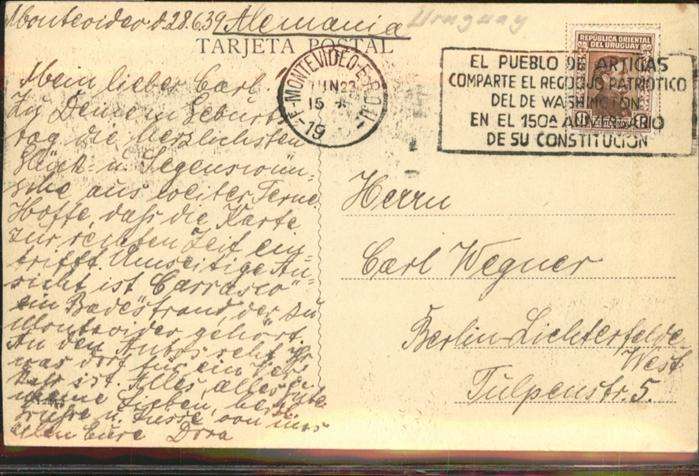 Montevideo d 28.6.39 Alemania
Uruguay
TARJETA POSTAL
REPÚBLICA ORIENTAL
DEL URUGUAY
MONTEVIDEO
JUN 28
15
19
EL PUEBLO DE ARTIGAS
COMPARTE EL REGOCIJO PATRIOTICO
DEL DE WASHINGTON
EN EL 150º ANIVERSARIO
DE SU CONSTITUCION
Mein lieber Carl
Zu Deinem Geburts
tag die herzlichsten
Glück u. Segenswün
sche aus weiter Ferne
Hoffe, daß die Karte
zur rechten Zeit ein
trifft Umseitige An
sicht ist "Carrasco"
ein Badestrand der zu
Montevideo gehört.
An den Autos seht Ihr
was dort für ein Ver
kehr ist. Alles, alles Gu
meine Lieben, herzliche
Grüsse u. Küsse von uns
allen Eure Dora
Herrn
Carl Wegner
Berlin-Lichterfelde
West
Tulpenstr. 5.